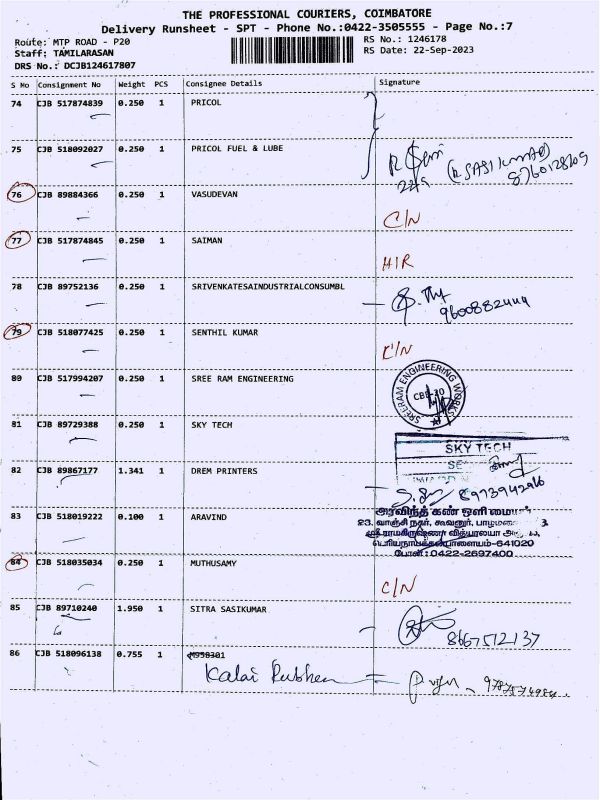 THE PROFESSIONAL COURIERS, COIMBATORE
Delivery Runsheet - SPT - Phone No.:0422-3505555 - Page No.:7
Route: MTP ROAD - P20
RS No.: 1246178
Staff: TAMILARASAN
RS Date: 22-Sep-2023
DRS No.: DCJB124617807
S No Consignment No Weight PCS Consignee Details Signature
74 CJB 517874839 0.250 1 PRICOL
75 CJB 518092027 0.250 1 PRICOL FUEL & LUBE
(R SASI KUMAR)
22/9 8760128109
76 CJB 89884366 0.250 1 VASUDEVAN
C/N
77 CJB 517874845 0.250 1 SAIMAN
HIR
78 CJB 89752136 0.250 1 SRIVENKATESAINDUSTRIALCONSUMBL
9600882444
79 CJB 518077425 0.250 1 SENTHIL KUMAR
C/N
80 CJB 517994207 0.250 1 SREE RAM ENGINEERING
SRI RAM ENGINEERING WORKS
CBE-30
81 CJB 89729388 0.250 1 SKY TECH
SKY TECH
82 CJB 89867177 1.341 1 DREM PRINTERS
8973942916
83 CJB 518019222 0.100 1 ARAVIND
அரவிந்த் கண் ஒளி மையம்
23, வாஞ்சி நகர், கூவனூர், பாழமலை
ஸ்ரீ ராமகிருஷ்ணா வித்யாலயா
பெரியநாயக்கன்பாளையம்-641020
போன் : 0422-2697400
84 CJB 518035034 0.250 1 MUTHUSAMY
C/N
85 CJB 89710240 1.950 1 SITRA SASIKUMAR
8667512137
86 CJB 518096138 0.755 1 M958301
Kalai Rubhen